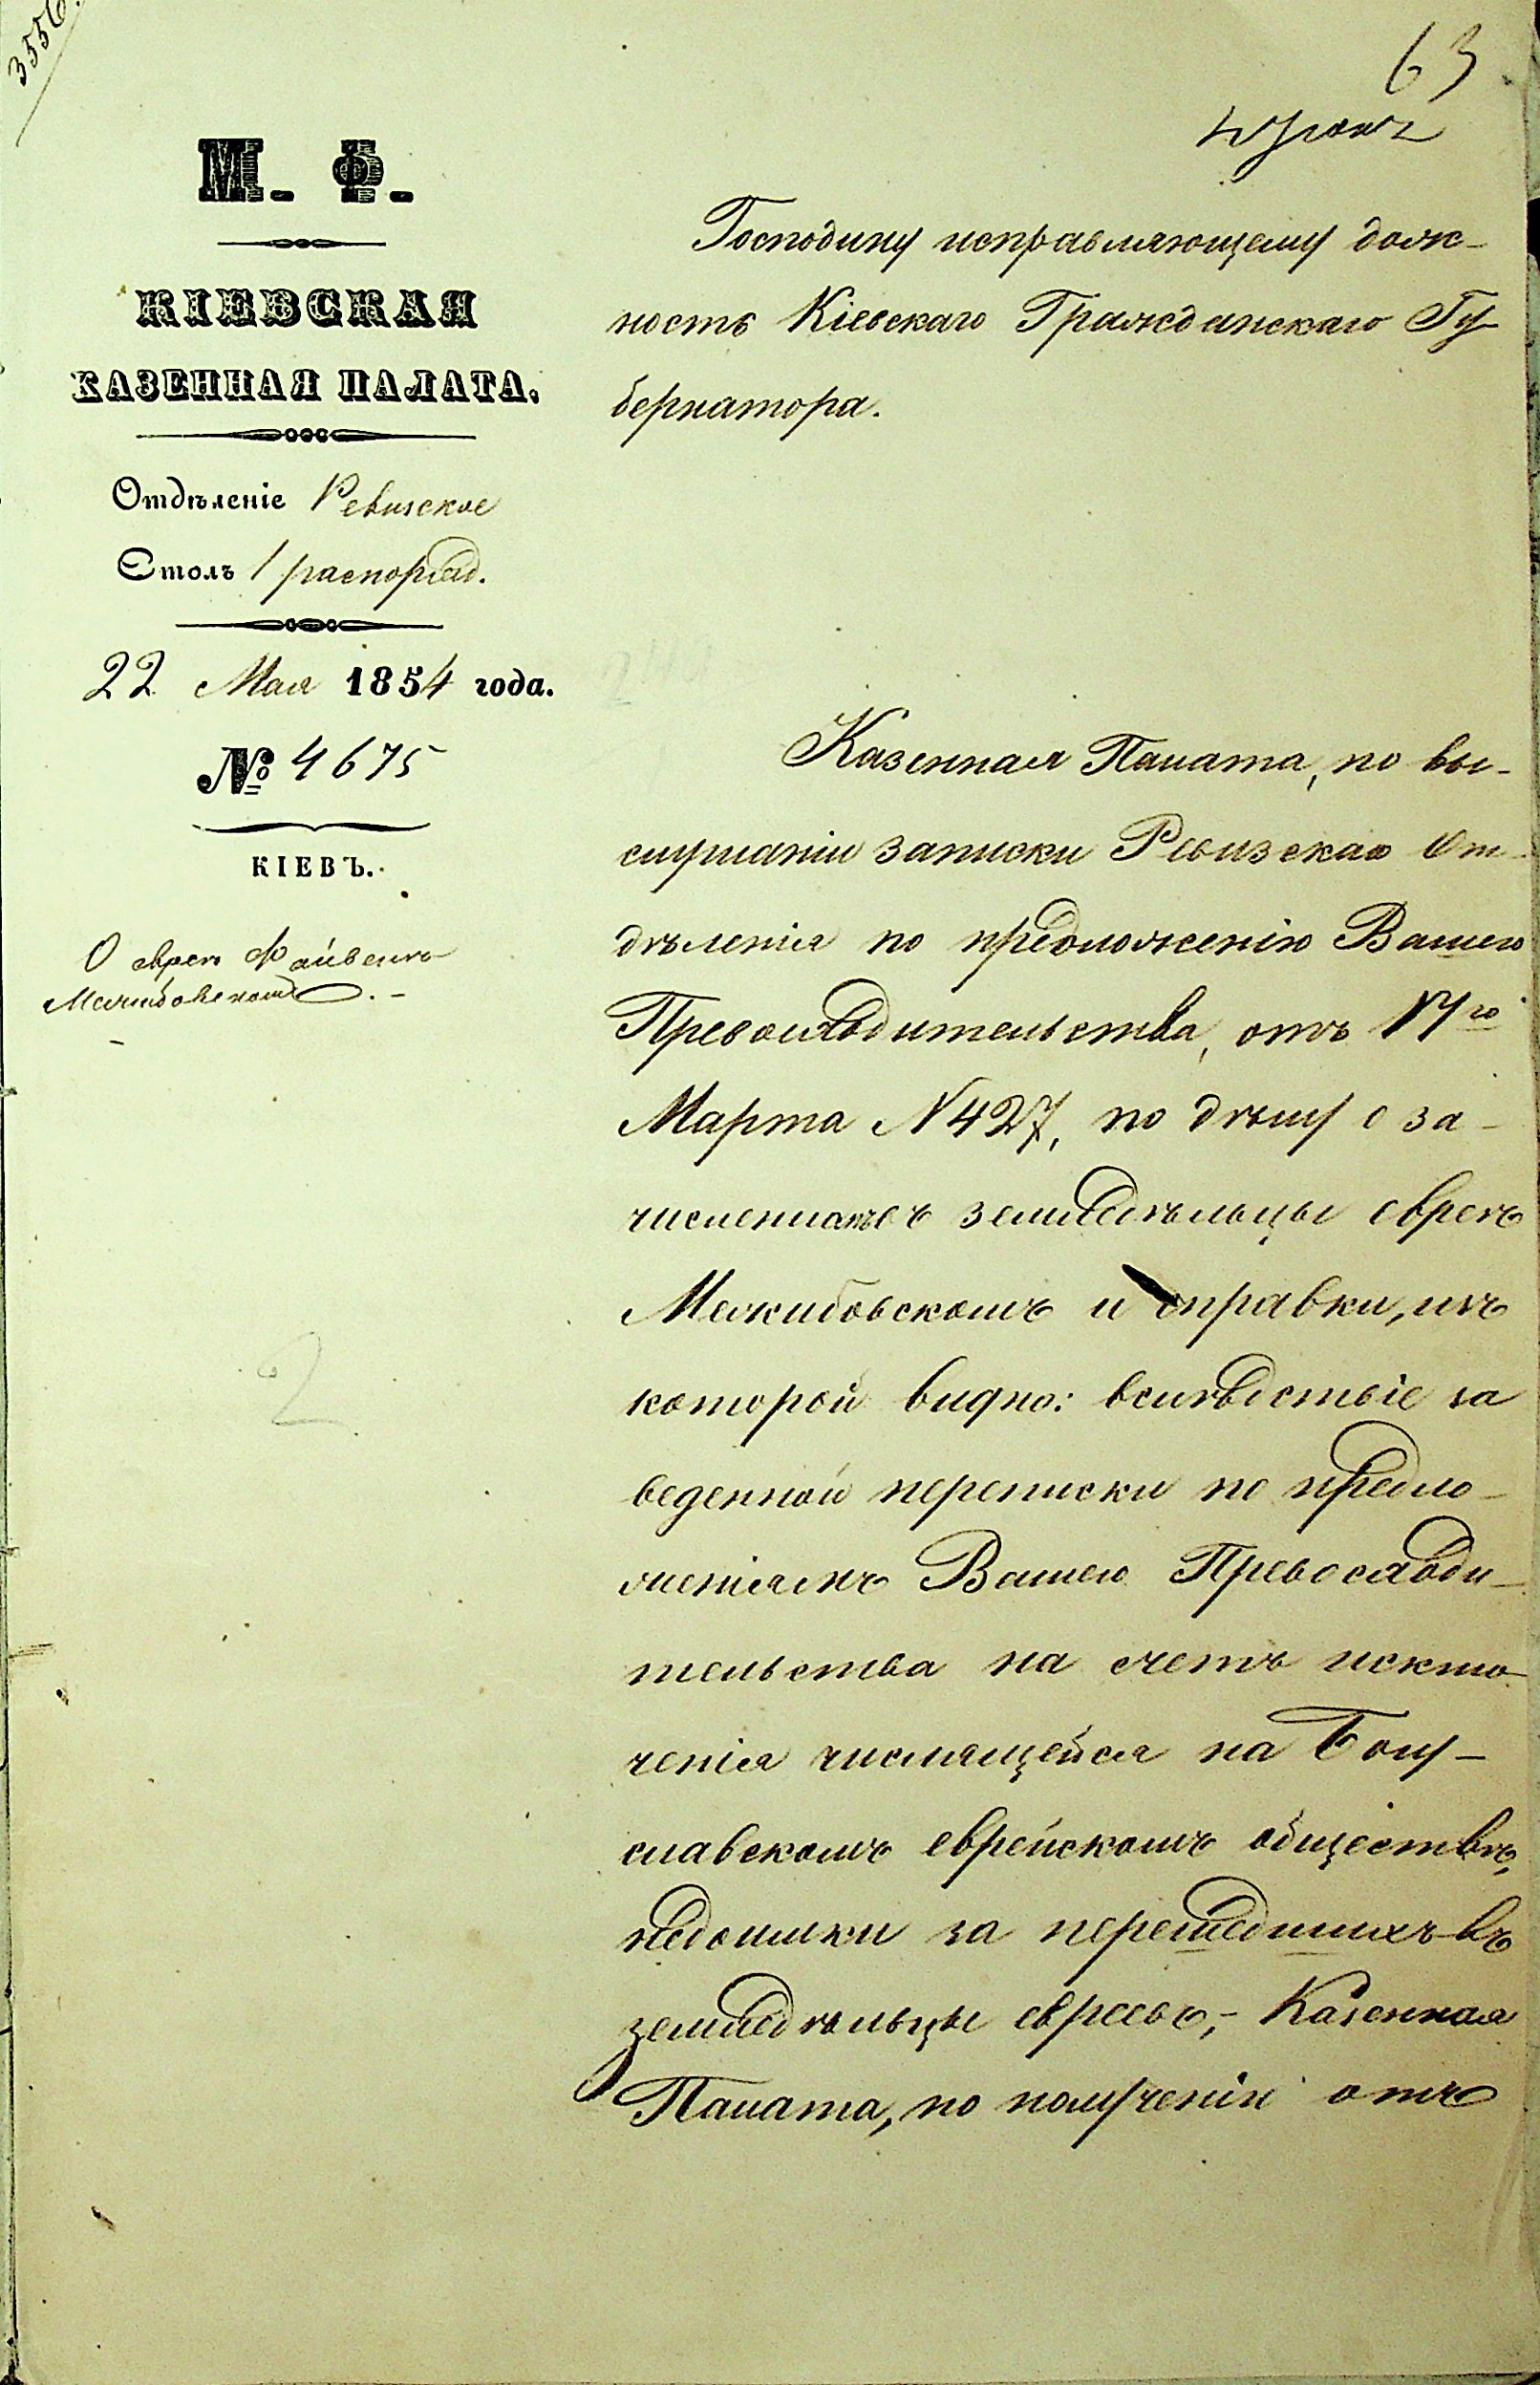 3556.
63
М. Ф.
КІЕВСКАЯ
КАЗЕННАЯ ПАЛАТА.
Отдѣленіе Ревизское
Столъ 1 распоряд.
22 Мая 1854 года.
№ 4675
КІЕВЪ.
О евреѣ Файвелѣ
Межибовскомъ.
Господину исправляющему долж-
ность Кіевскаго Гражданскаго Гу-
бернатора.
Казенная Палата, по вы-
слушаніи записки Ревизскаго От-
дѣленія по предложенію Вашего
Превосходительства, отъ 17го
Марта N 427, по дѣлу о за-
численномъ въ земледѣльцы евреѣ
Межибовскомъ и справки, изъ
которой видно: вслѣдствіе за
веденной переписки по предло-
женіямъ Вашего Превосходи-
тельства на счетъ исклю-
ченія числящейся на Богу-
славскомъ еврейскомъ обществѣ,
недоимки за перешедшихъ въ
земледѣльцы евреевъ,- Казенная
Палата, по полученіи отъ